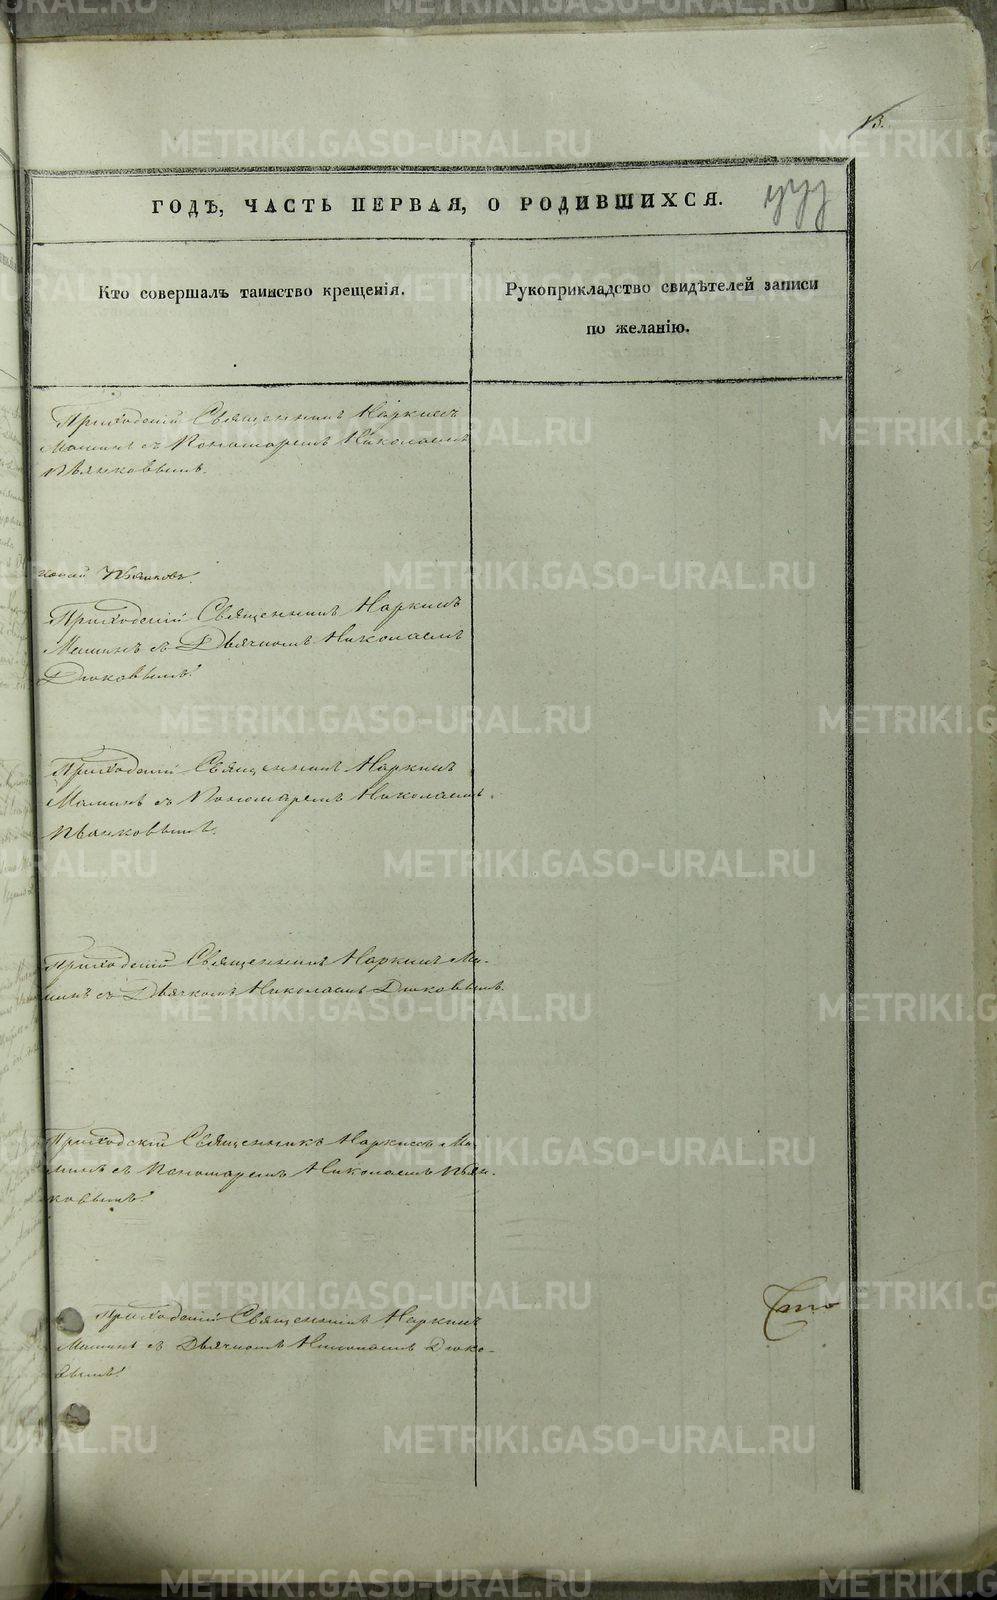 13.
ГОДЪ, ЧАСТЬ ПЕРВАЯ, О РОДИВШИХСЯ.
Кто совершалъ таинство крещенія.
Рукоприкладство свидѣтелей записи
по желанію.
Приходскій Священникъ Наркисъ
Маминъ съ Пономаремъ Николаемъ
Пьянковымъ.
Пьянковъ.
Приходскій Священникъ Наркисъ
Маминъ съ Дьячкомъ Николаемъ
Дюковымъ.
Приходскій Священникъ Наркисъ
Маминъ съ Пономаремъ Николаемъ
Пьянковымъ.
Приходскій Священникъ Наркисъ Ма-
минъ съ Дьячкомъ Николаемъ Дюковымъ.
Приходскій Священникъ Наркисъ Ма-
минъ съ Пономаремъ Николаемъ Пьян-
ковымъ.
Приходскій Священникъ Наркисъ
Маминъ съ Дьячкомъ Николаемъ Дюко-
вымъ.
METRIKI.GASO-URAL.RU